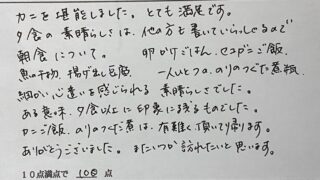 カニを堪能しました。とても満足です。
夕食の素晴らしさは、他の方も書いていらっしゃるので
朝食について。 卵かけごはん、
魚の干物、揚げ出し豆腐、一人ひとつ、のりのつくだ煮瓶、
細かい心遣いを感じられる素晴らしさでした。
ある意味、夕食以上に印象に残るものでした。
カニご飯、のりのつくだ煮は、有難く頂いて帰ります。
ありがとうございました。またいつか訪れたいと思います。
10点満点で 100 点